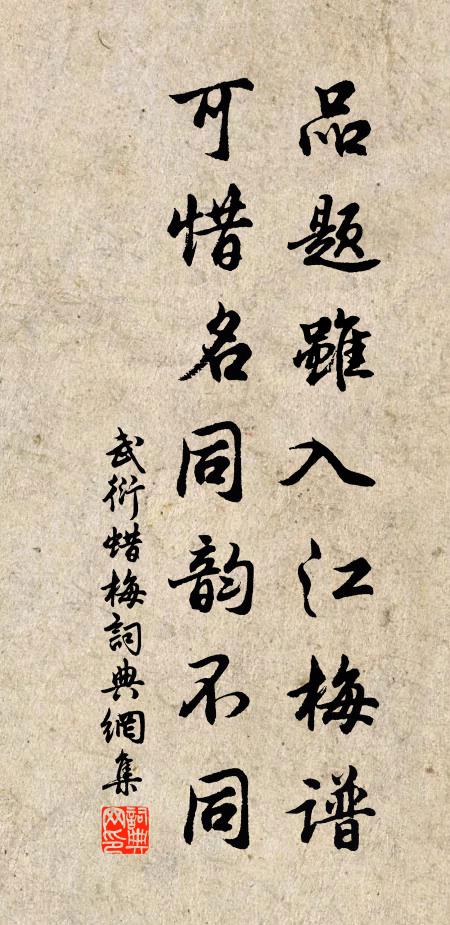 品题雖入江梅谱
可惜名同韵不同
武衍蜡梅詞典網集
詞典網印